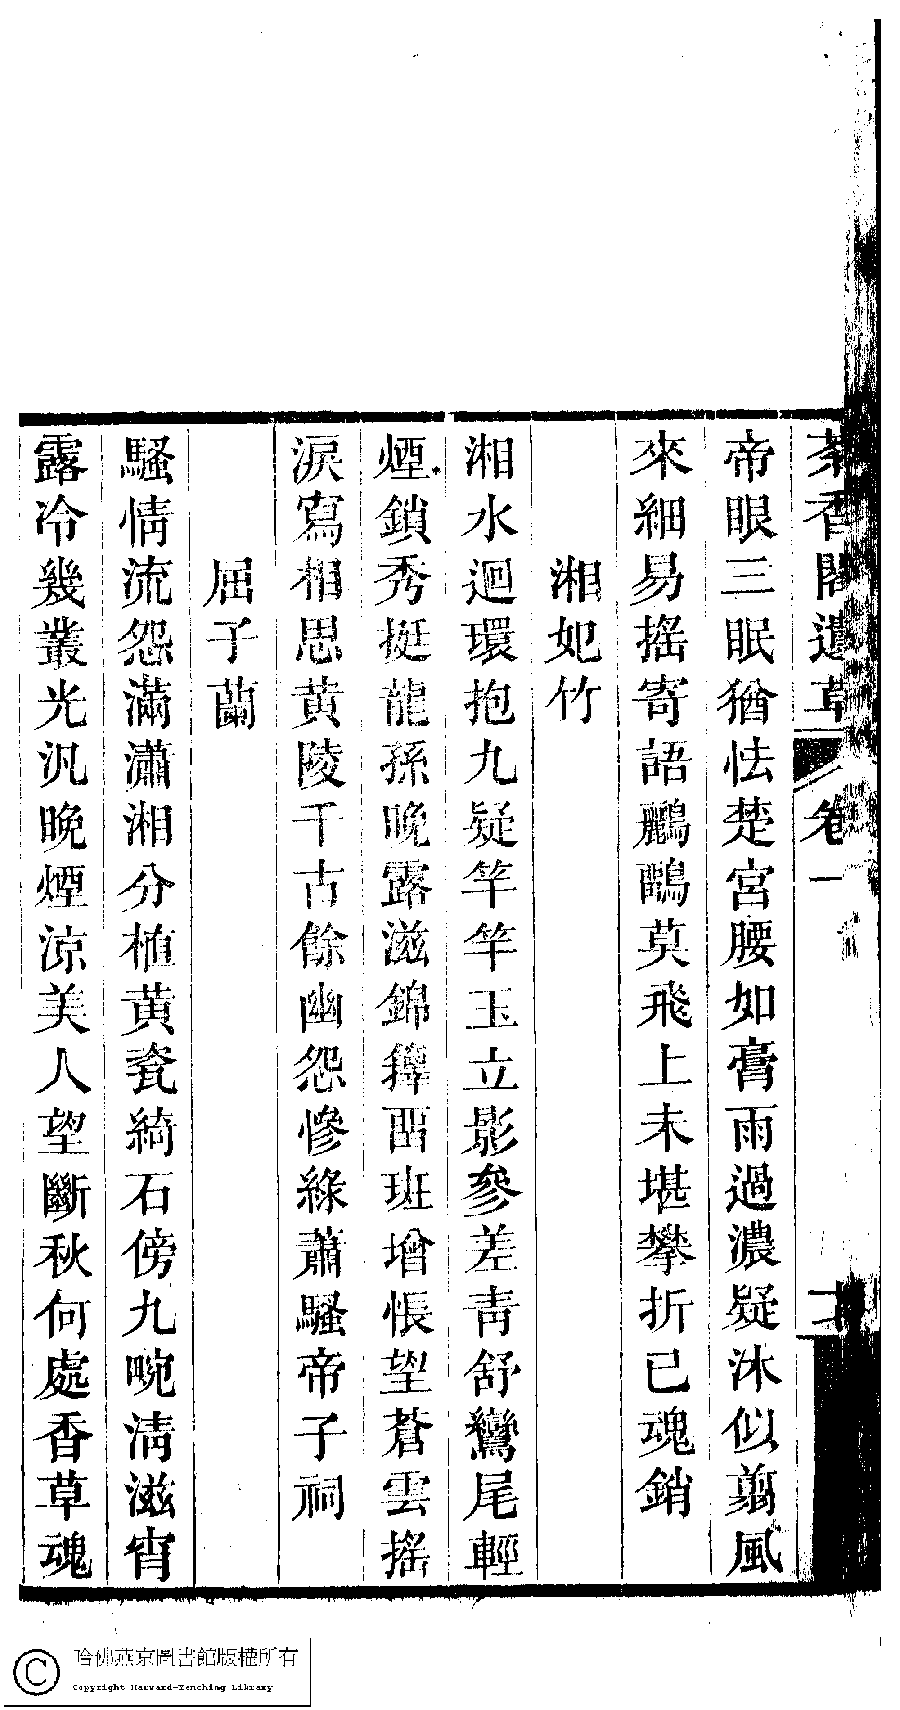 茶香閣遺草 卷一
帝眼三眠猶怯楚宮腰如膏雨過濃疑沐似翦風
來細易搖寄語鸝鷗莫飛上未堪攀折已魂銷
湘妃竹
湘水迴環抱九疑竿竿玉立影參差靑舒鸞尾輕
煙鎖秀挺龍孫晚露滋錦籜畱班增悵望蒼雲搖
淚寫相思黃陵千古餘幽怨慘綠蕭騷帝子祠
屈子蘭
騷情流怨滿瀟湘分植黃瓷綺石傍九畹淸滋宵
露冷幾叢光汎晚煙涼美人望斷秋何處香草魂
哈佛燕京圖書館版權所有
Copyright Harvard-Yenching Library